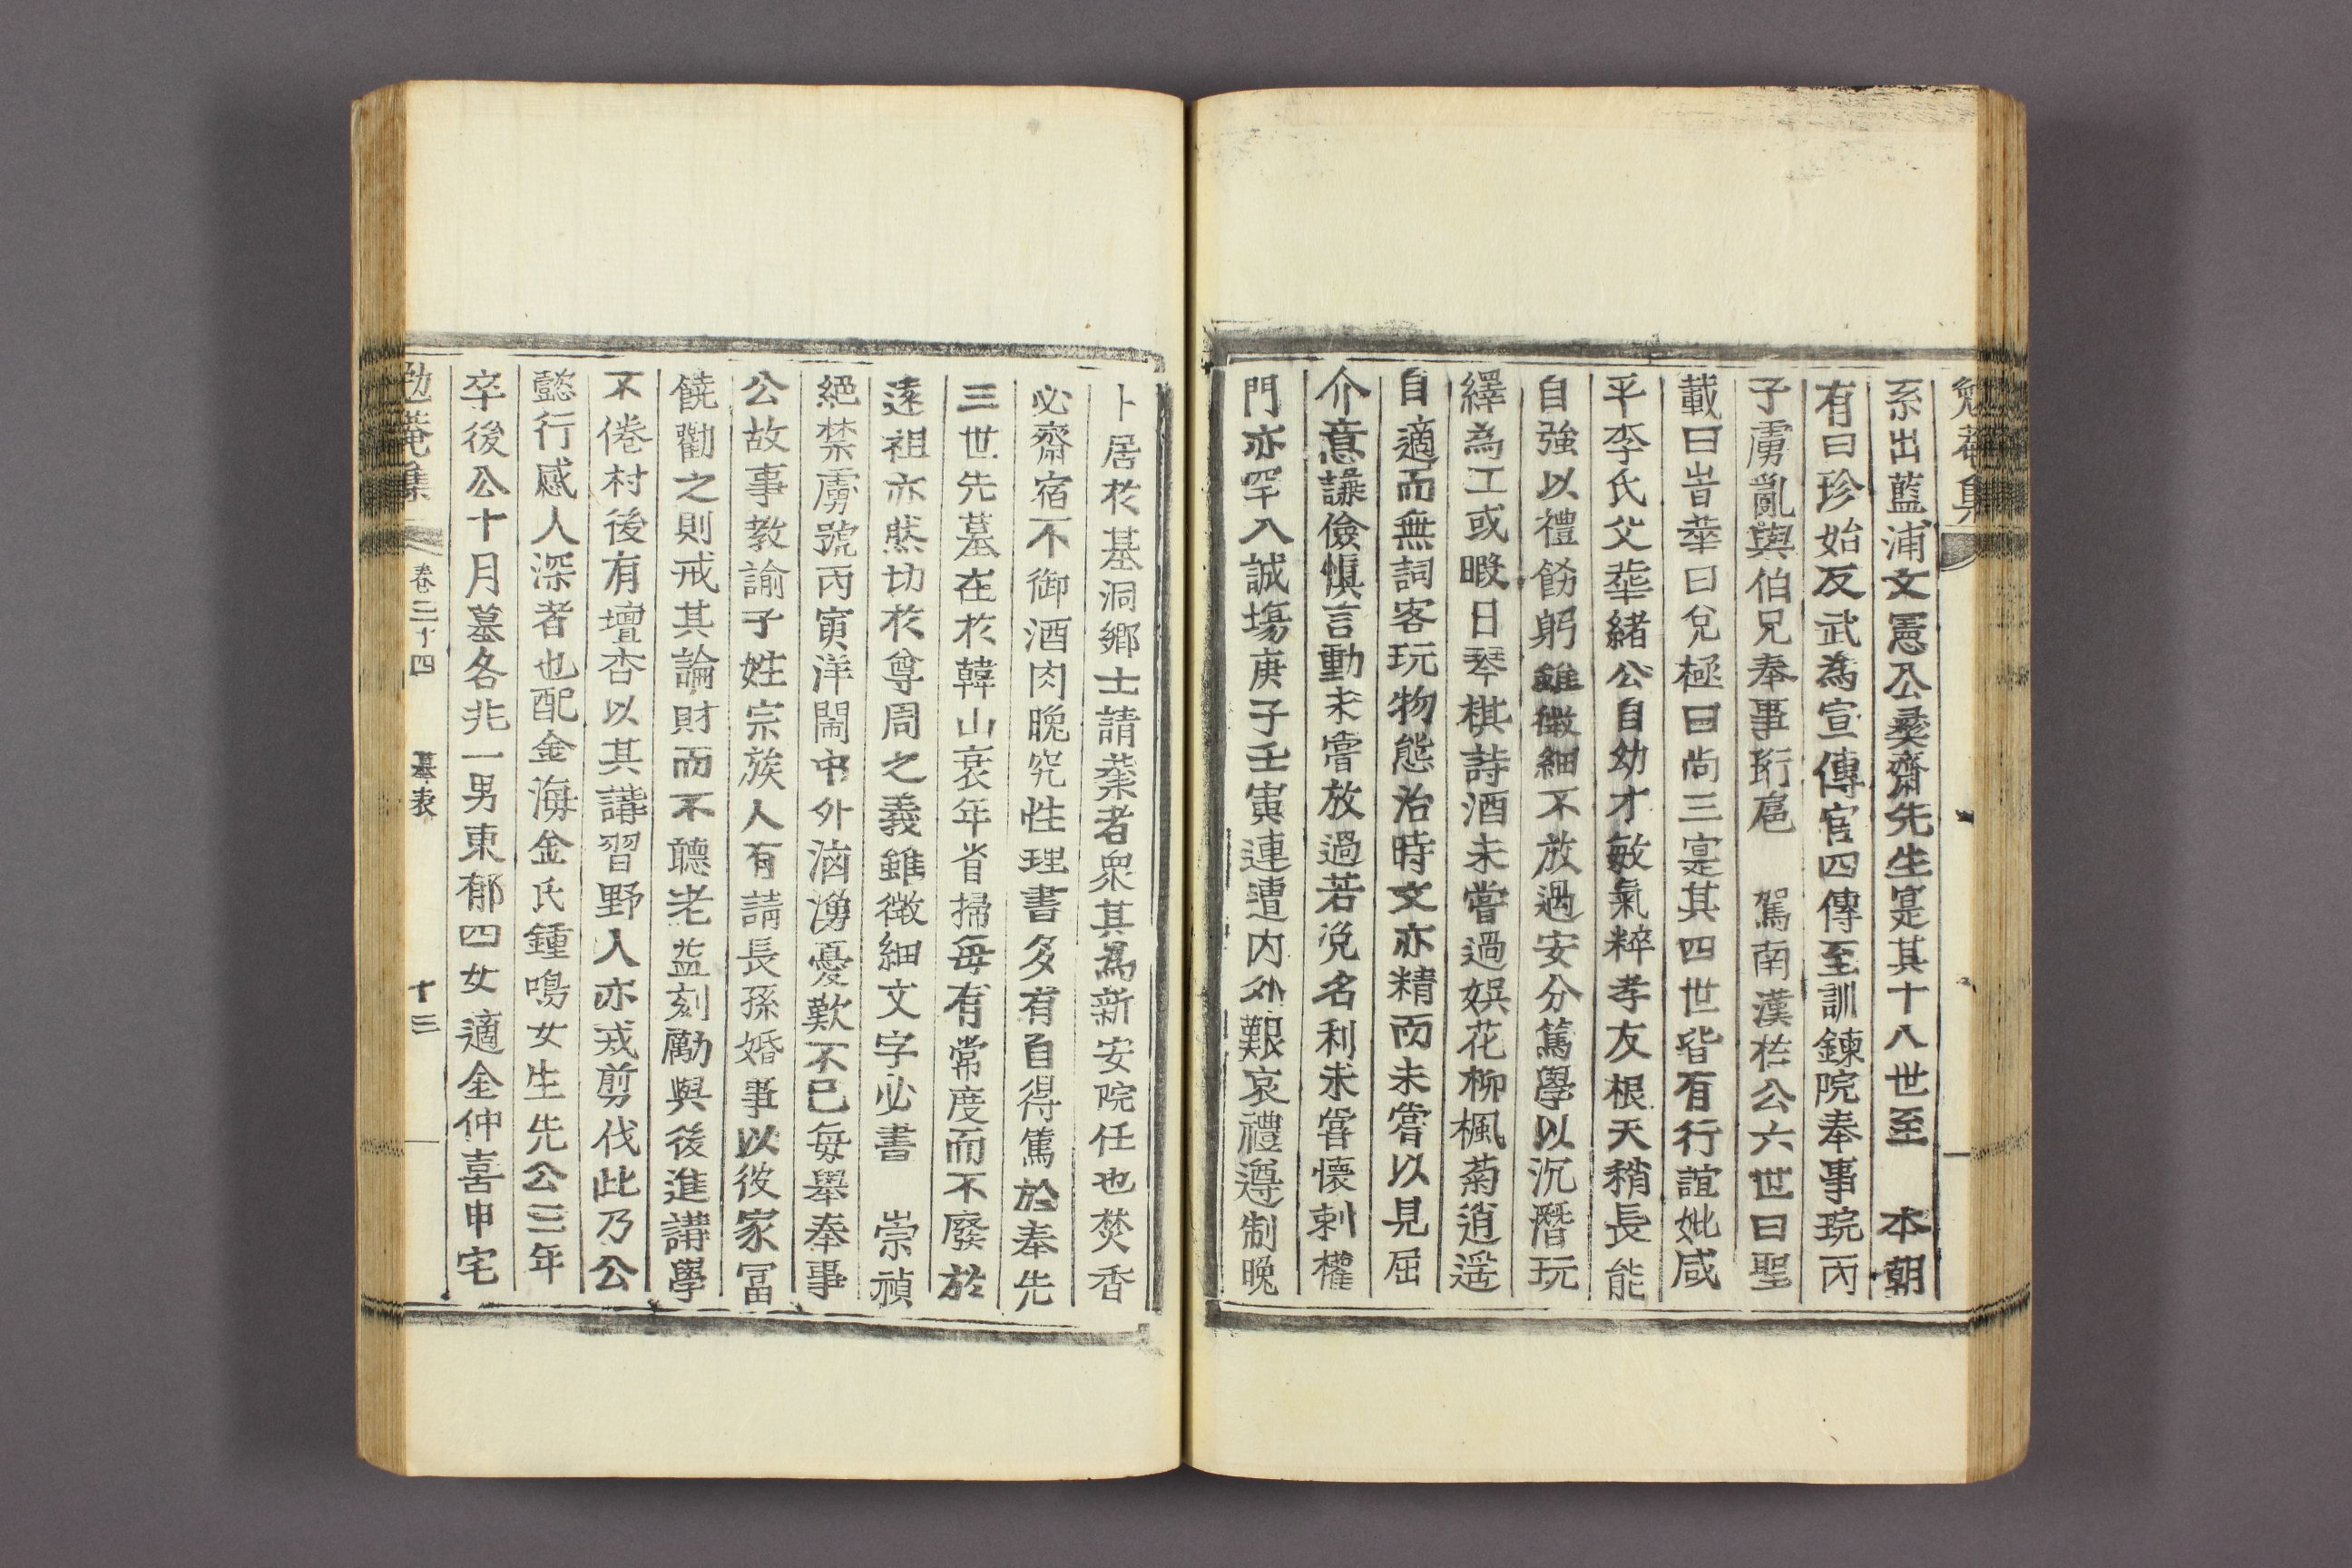 勉菴集
系出藍浦文憲公彝齋先生寔其十八世至 本朝
有曰珍始反武為宣傳官四傳至訓鍊院奉事琓丙
子虜亂與伯兄奉事珩扈 駕南漢於公六世曰聖
載曰旹華曰兌極曰尙三寔其四世皆有行誼妣咸
平李氏父華緖公自幼才敏氣粹孝友根天稍長能
自強以禮飭躬雖微細不放過安分篤學以沉潛玩
繹為工或暇日琴棋詩酒未嘗過娛花柳楓菊逍遥
自適而無詞客玩物態治時文亦精而未嘗以見屈
介意謙儉愼言動未嘗放過若浼名利未嘗懷刺權
門亦罕入諴塲庚子壬寅連遭内外艱哀禮遵制晚
卜居於基洞鄉士請業者衆其為新安院任也焚香
必齋宿不御酒肉晚究性理書多有自得篤於奉先
三世先墓在於韓山衰年省掃每有常度而不廢於
遠祖亦然切於尊周之義雖微細文字必書 崇禎
絕禁虜號丙寅洋閙中外洶湧憂歎不已每舉奉事
公故事教諭子姪宗族人有請長孫婚事以彼家冨
饒勸之則戒其論財而不聽老益刻勵與後進講學
不倦村後有壇杏以其講習野人亦戒剪伐此乃公
懿行感人深者也配金海金氏鍾鳴女生先公三年
卒後公十月墓各兆一男東郁四女適全仲喜申宅
勉菴集 卷二十四 墓表 十三